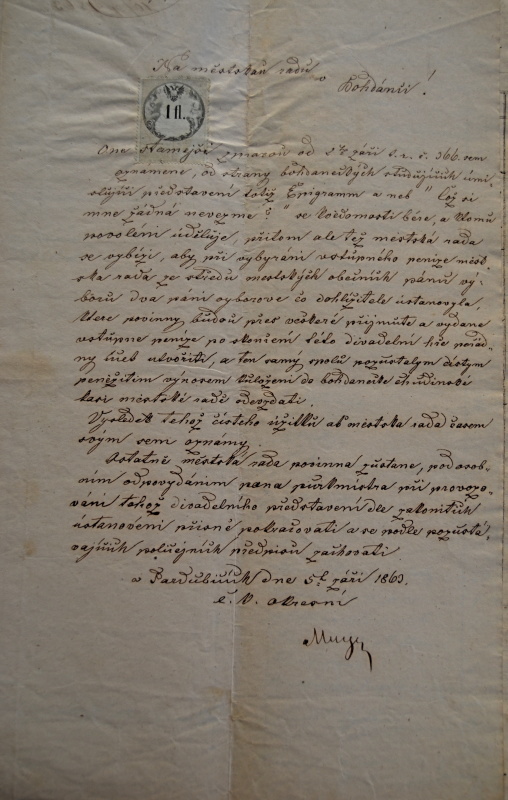 Na městskou radu
v
Bohdánči!
1 fl.
Ono tamější zprazou od 2ho září t. r. č. 366 sem
oznamené, od strany bohdanečských studujících úmi-
slující představení totiž Epigramm a neb "Což si
mne žádná nevezme?" se k vědomosti béře, a k tomu
povolení uděluje, přitom ale též městská rada
se vybízí, aby při vybyrání vstupného peníze měst-
ska rada ze středu městských obecních pánů vý-
borů dva páni vyborove co dohlížitele ustanovyla,
ktere povinny budou přes veškeré přijmute a vydane
vstupne peníze po skončení této divadelní hře pořád-
ny účet utvořiti, a ten samý spolu pozustalym čistym
peněžitim výnosem k uložení do bohdanečke chudinské
kasi městské radě odevzdati.
Vysledek tehož čisteho užitků ať městska rada časem
svým sem oznámy.
Ostatně městská rada povinna zůstane, pod osob-
ním odpovydáním pana purkmistra při provozo-
vání tehož divadelního představení dle zakonitích
ustanovení přísně pokračovati a se podle pozustá-
vajících policejních předpisu zachovati
v Pardubicích dne 5ho září 1863.
c. k. okresní